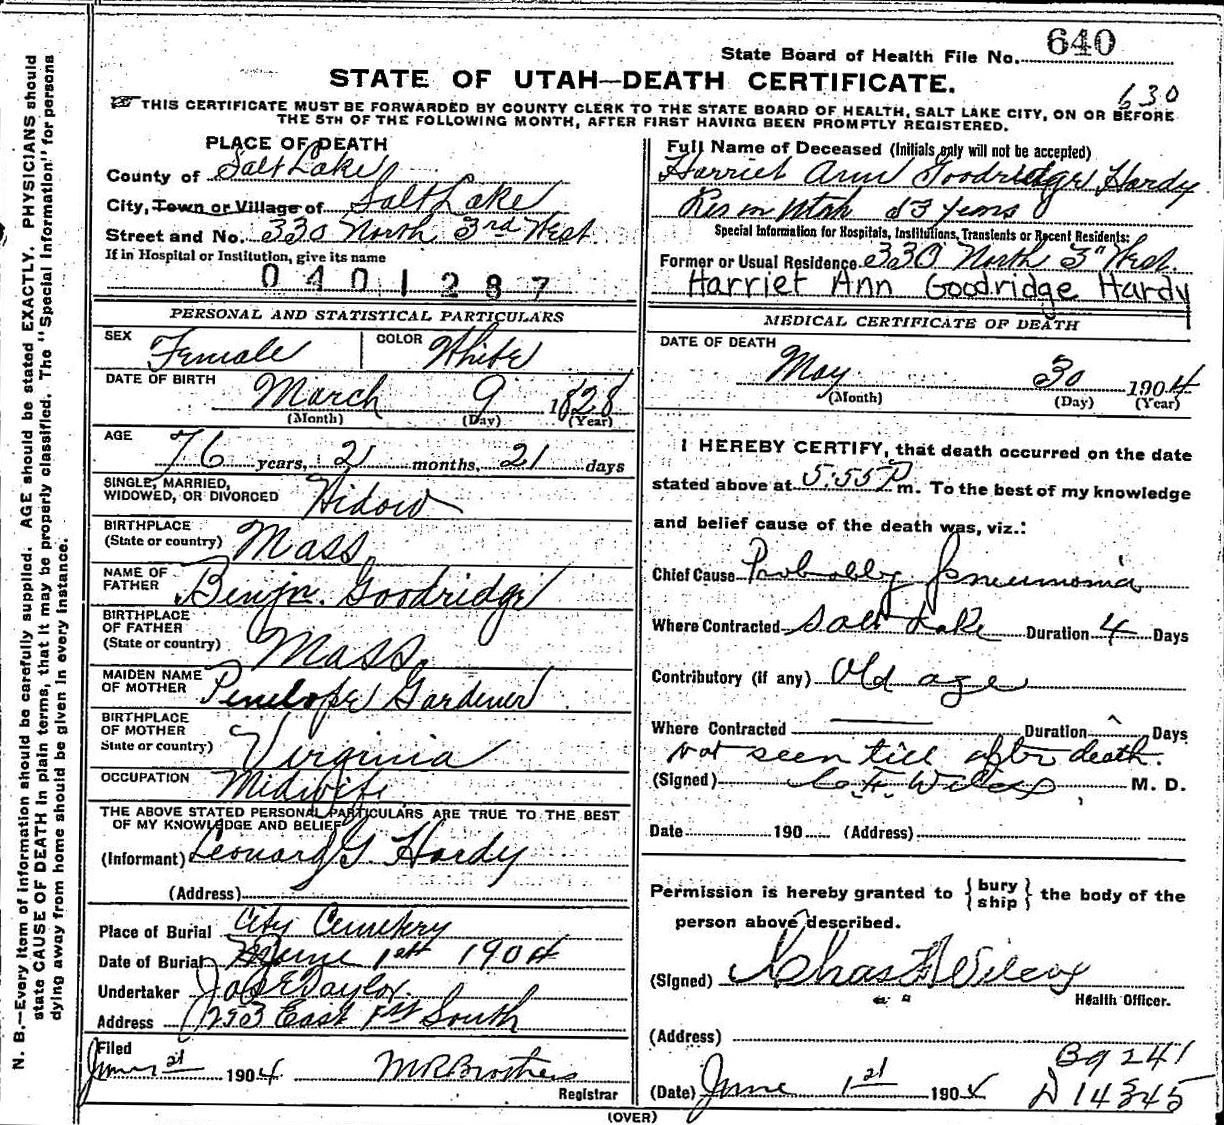 State Board of Health File No. 640
STATE OF UTAH—DEATH CERTIFICATE.
630
THIS CERTIFICATE MUST BE FORWARDED BY COUNTY CLERK TO THE STATE BOARD OF HEALTH, SALT LAKE CITY, ON OR BEFORE
THE 5TH OF THE FOLLOWING MONTH, AFTER FIRST HAVING BEEN PROMPTLY REGISTERED.
N. B.—Every item of information should be carefully supplied. AGE should be stated EXACTLY. PHYSICIANS should
state CAUSE OF DEATH in plain terms, that it may be properly classified. The "Special Information" for persons
dying away from home should be given in every instance.
PLACE OF DEATH
County of Salt Lake
City, Town or Village of Salt Lake
Street and No. 330 North 3rd West
If in Hospital or Institution, give its name
0401287
PERSONAL AND STATISTICAL PARTICULARS
SEX Female COLOR White
DATE OF BIRTH March 9 1828
(Month) (Day) (Year)
AGE 76 years, 2 months, 21 days
SINGLE, MARRIED,
WIDOWED, OR DIVORCED Widow
BIRTHPLACE
(State or country) Mass
NAME OF
FATHER Benjn. Goodridge
BIRTHPLACE
OF FATHER
(State or country) Mass.
MAIDEN NAME
OF MOTHER Penelope Gardener
BIRTHPLACE
OF MOTHER
State or country) Virginia
OCCUPATION Midwife
THE ABOVE STATED PERSONAL PARTICULARS ARE TRUE TO THE BEST
OF MY KNOWLEDGE AND BELIEF
(Informant) Leonard G. Hardy
(Address)
Place of Burial City Cemetery
Date of Burial June 1st 1904
Undertaker Jos E Taylor
Address 253 East 1st South
Filed
June 1st 1904 M R Brothers
Registrar
Full Name of Deceased (Initials only will not be accepted)
Harriet Ann Goodridge Hardy
Res in Utah 53 years
Special Information for Hospitals, Institutions, Transients or Recent Residents:
Former or Usual Residence 330 North 3" West
Harriet Ann Goodridge Hardy
MEDICAL CERTIFICATE OF DEATH
DATE OF DEATH
May 30 1904
(Month) (Day) (Year)
I HEREBY CERTIFY, that death occurred on the date
stated above at 5:55 P m. To the best of my knowledge
and belief cause of the death was, viz.:
Chief Cause Probably Pneumonia
Where Contracted Salt Lake Duration 4 Days
Contributory (if any) Old age
Where Contracted Duration Days
not seen till after death.
(Signed) C. F. Wilcox M. D.
Date 190 (Address)
Permission is hereby granted to {bury
ship} the body of the
person above described.
(Signed) Chas F Wilcox
Health Officer.
(Address)
B9241
(Date) June 1st 1904 D 14345
(OVER)